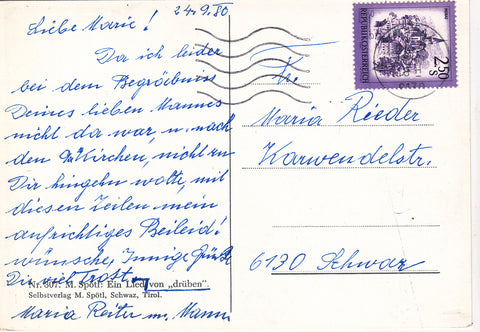 24.9.80
Liebe Marie!
Da ich leider
bei dem Begräbnis
Deines lieben Mannes
nicht da war, u. nach
den Kirchen, nicht zu
Dir hingehn wollte, mit
diesen Zeilen mein
aufrichtiges Beileid!
wünsche, Innige Grüße
Dir viel Trost
Nr. 607: M. Spötl: Ein Lied von „drüben".
Selbstverlag M. Spötl, Schwaz, Tirol.
Maria Reiter m. Mann
REPUBLIK ÖSTERREICH
2.50
S
Fr.
Maria Rieder
Karwendelstr.
6130 Schwaz